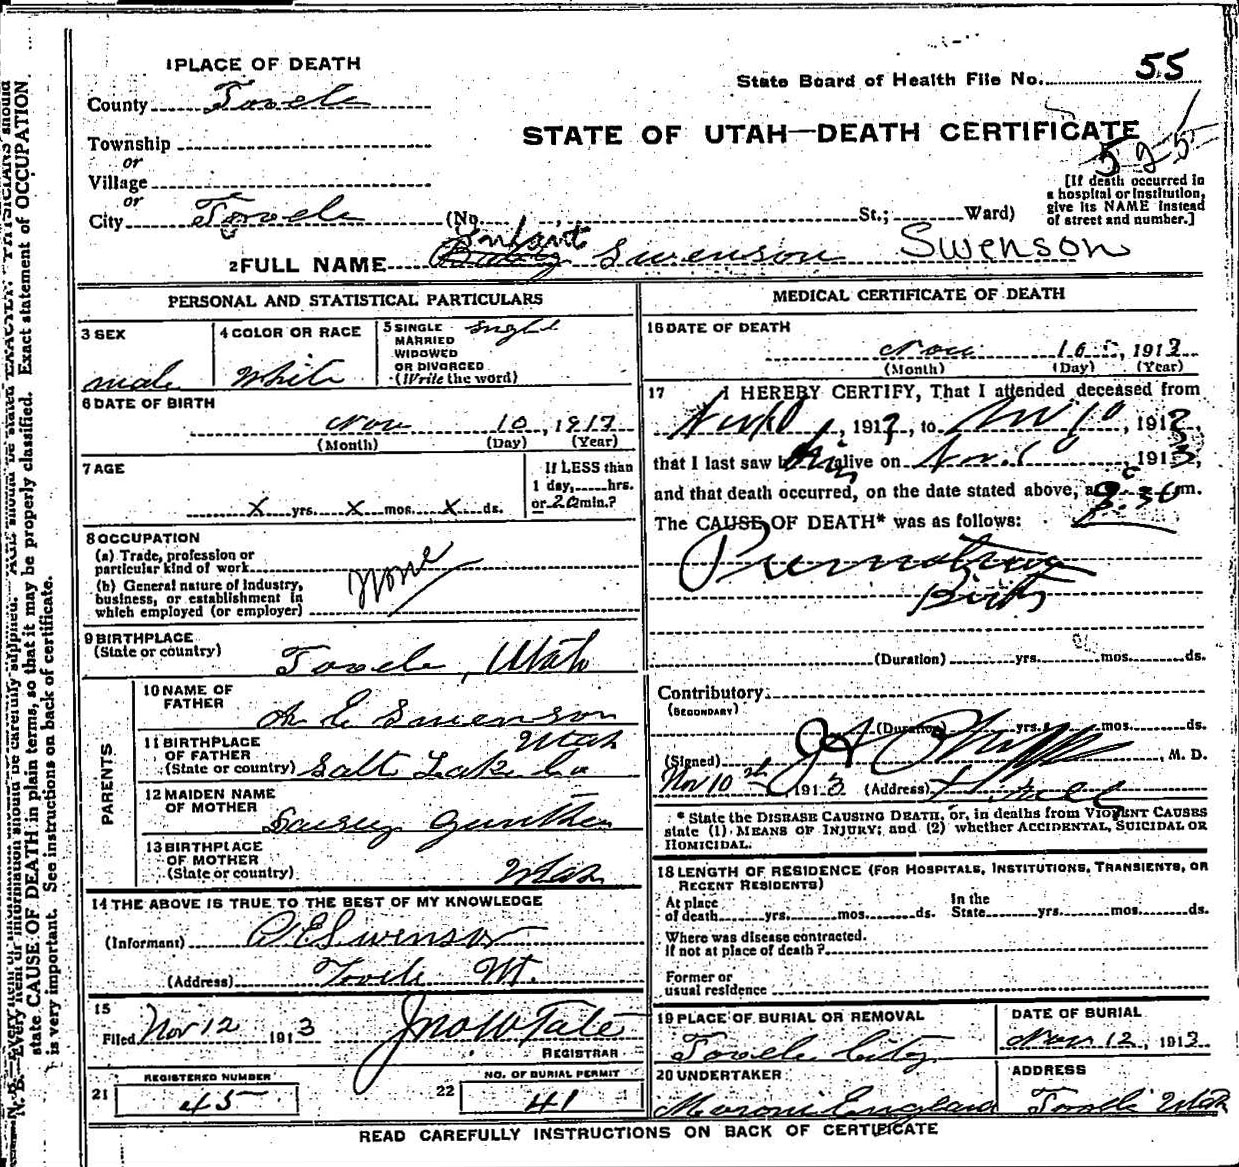 1 PLACE OF DEATH
State Board of Health File No. 55
County Tooele
STATE OF UTAH—DEATH CERTIFICATE
Township
or
Village
or
City Tooele (No. St.; Ward)
525
[If death occurred in
a hospital or institution,
give its NAME instead
of street and number.]
2 FULL NAME Infant Swenson Swenson
PERSONAL AND STATISTICAL PARTICULARS
3 SEX
male
4 COLOR OR RACE
White
5 SINGLE
MARRIED
WIDOWED
OR DIVORCED
(Write the word)
single
6 DATE OF BIRTH
Nov 10, 1913
(Month) (Day) (Year)
7 AGE
x yrs. x mos. x ds.
If LESS than
1 day, hrs.
or 20 min.?
8 OCCUPATION
(a) Trade, profession or
particular kind of work
(b) General nature of industry,
business, or establishment in
which employed (or employer)
None
9 BIRTHPLACE
(State or country)
Tooele, Utah
PARENTS
10 NAME OF
FATHER
E Swenson
11 BIRTHPLACE
OF FATHER
(State or country)
Utah
Salt Lake Co
12 MAIDEN NAME
OF MOTHER
Gunther
13 BIRTHPLACE
OF MOTHER
(State or country)
Utah
14 THE ABOVE IS TRUE TO THE BEST OF MY KNOWLEDGE
(Informant) E Swenson
(Address) Tooele Ut.
15
Filed Nov 12 1913 Jno W Tate
REGISTRAR
REGISTERED NUMBER
21 45
NO. OF BURIAL PERMIT
22 41
MEDICAL CERTIFICATE OF DEATH
16 DATE OF DEATH
Nov 10, 1913
(Month) (Day) (Year)
17 I HEREBY CERTIFY, That I attended deceased from
Nov 10, 1913, to Nov 10, 1913
that I last saw him alive on Nov. 10, 1913,
and that death occurred, on the date stated above, at m.
The CAUSE OF DEATH* was as follows:
Premature
Birth
(Duration) yrs. mos. ds.
Contributory
(SECONDARY)
(Duration) yrs. mos. ds.
(Signed) J A Phipps, M. D.
Nov 10th 1913 (Address) Tooele
* State the DISEASE CAUSING DEATH, or, in deaths from VIOLENT CAUSES
state (1) MEANS OF INJURY; and (2) whether ACCIDENTAL, SUICIDAL OR
HOMICIDAL.
18 LENGTH OF RESIDENCE (FOR HOSPITALS, INSTITUTIONS, TRANSIENTS, OR
RECENT RESIDENTS)
At place
of death yrs. mos. ds.
In the
State yrs. mos. ds.
Where was disease contracted.
if not at place of death?
Former or
usual residence
19 PLACE OF BURIAL OR REMOVAL
Tooele City
DATE OF BURIAL
Nov 12, 1913
20 UNDERTAKER
Moroni England
ADDRESS
Tooele Utah
READ CAREFULLY INSTRUCTIONS ON BACK OF CERTIFICATE
state CAUSE OF DEATH in plain terms, so that it may be properly classified. Exact statement of OCCUPATION
is very important. See instructions on back of certificate.